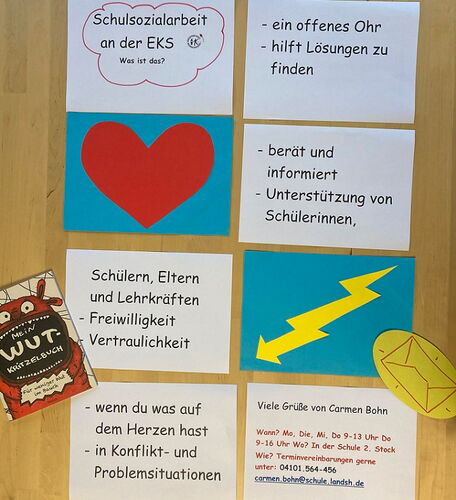 Schulsozialarbeit
an der EKS
Was ist das?
- ein offenes Ohr
- hilft Lösungen zu
finden
- berät und
informiert
- Unterstützung von
Schülerinnen,
Schülern, Eltern
und Lehrkräften
- Freiwilligkeit
- Vertraulichkeit
MEIN
WUT
KRITZELBUCH
Für weniger Wut
im Bauch
- wenn du was auf
dem Herzen hast
- in Konflikt- und
Problemsituationen
Viele Grüße von Carmen Bohn
Wann? Mo, Die, Mi, Do 9-13 Uhr Do
9-16 Uhr Wo? In der Schule 2. Stock
Wie? Terminvereinbarungen gerne
unter: 04101.564-456
carmen.bohn@schule.landsh.de